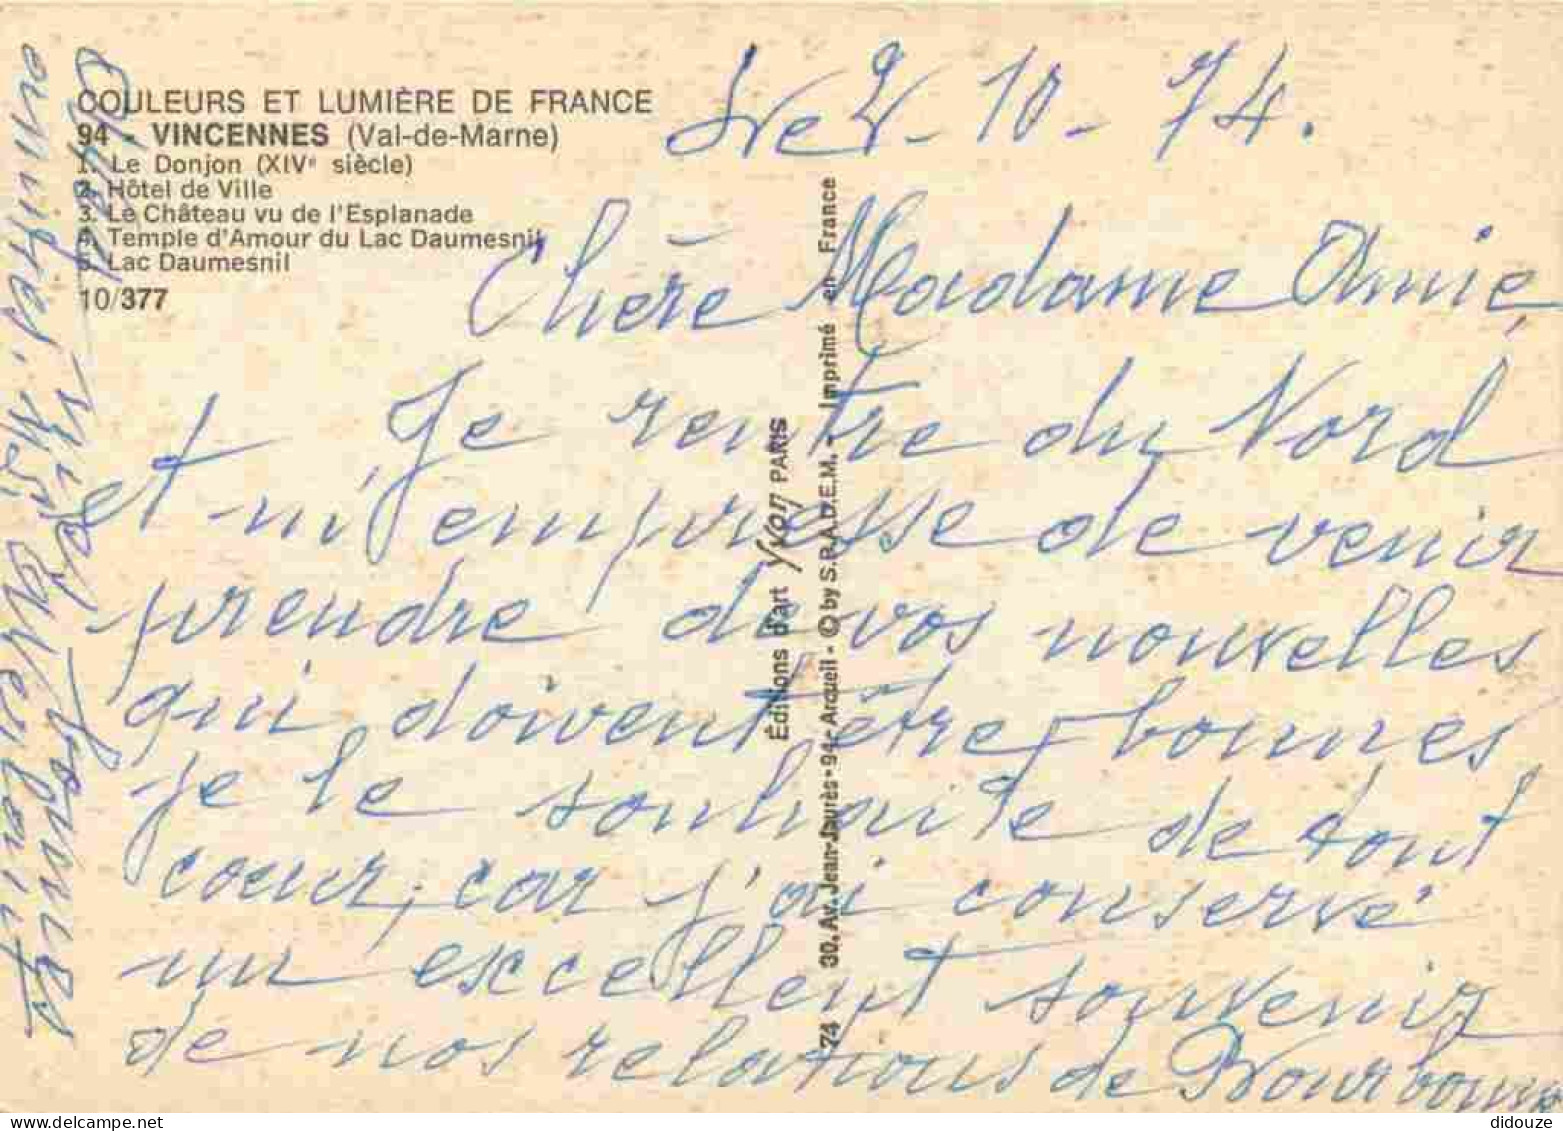 COULEURS ET LUMIÈRE DE FRANCE
94 - VINCENNES (Val-de-Marne)
1. Le Donjon (XIVe siècle)
2. Hôtel de Ville
3. Le Château vu de l'Esplanade
4. Temple d'Amour du Lac Daumesnil
5. Lac Daumesnil
10/377
Le 2 - 10 - 74.
Chère Madame Amie,
Je rentre du Nord
et m'empresse de venir
prendre de vos nouvelles
qui doivent être bonnes
je le souhaite de tout
cœur, car j'ai conservé
un excellent souvenir
de nos relations de Bourbonne
Éditions d'art Yvon PARIS
74 30, Av. Jean-Jaurès - 94 - Arcueil - © by S.P.A.D.E.M. - Imprimé en France
didouze